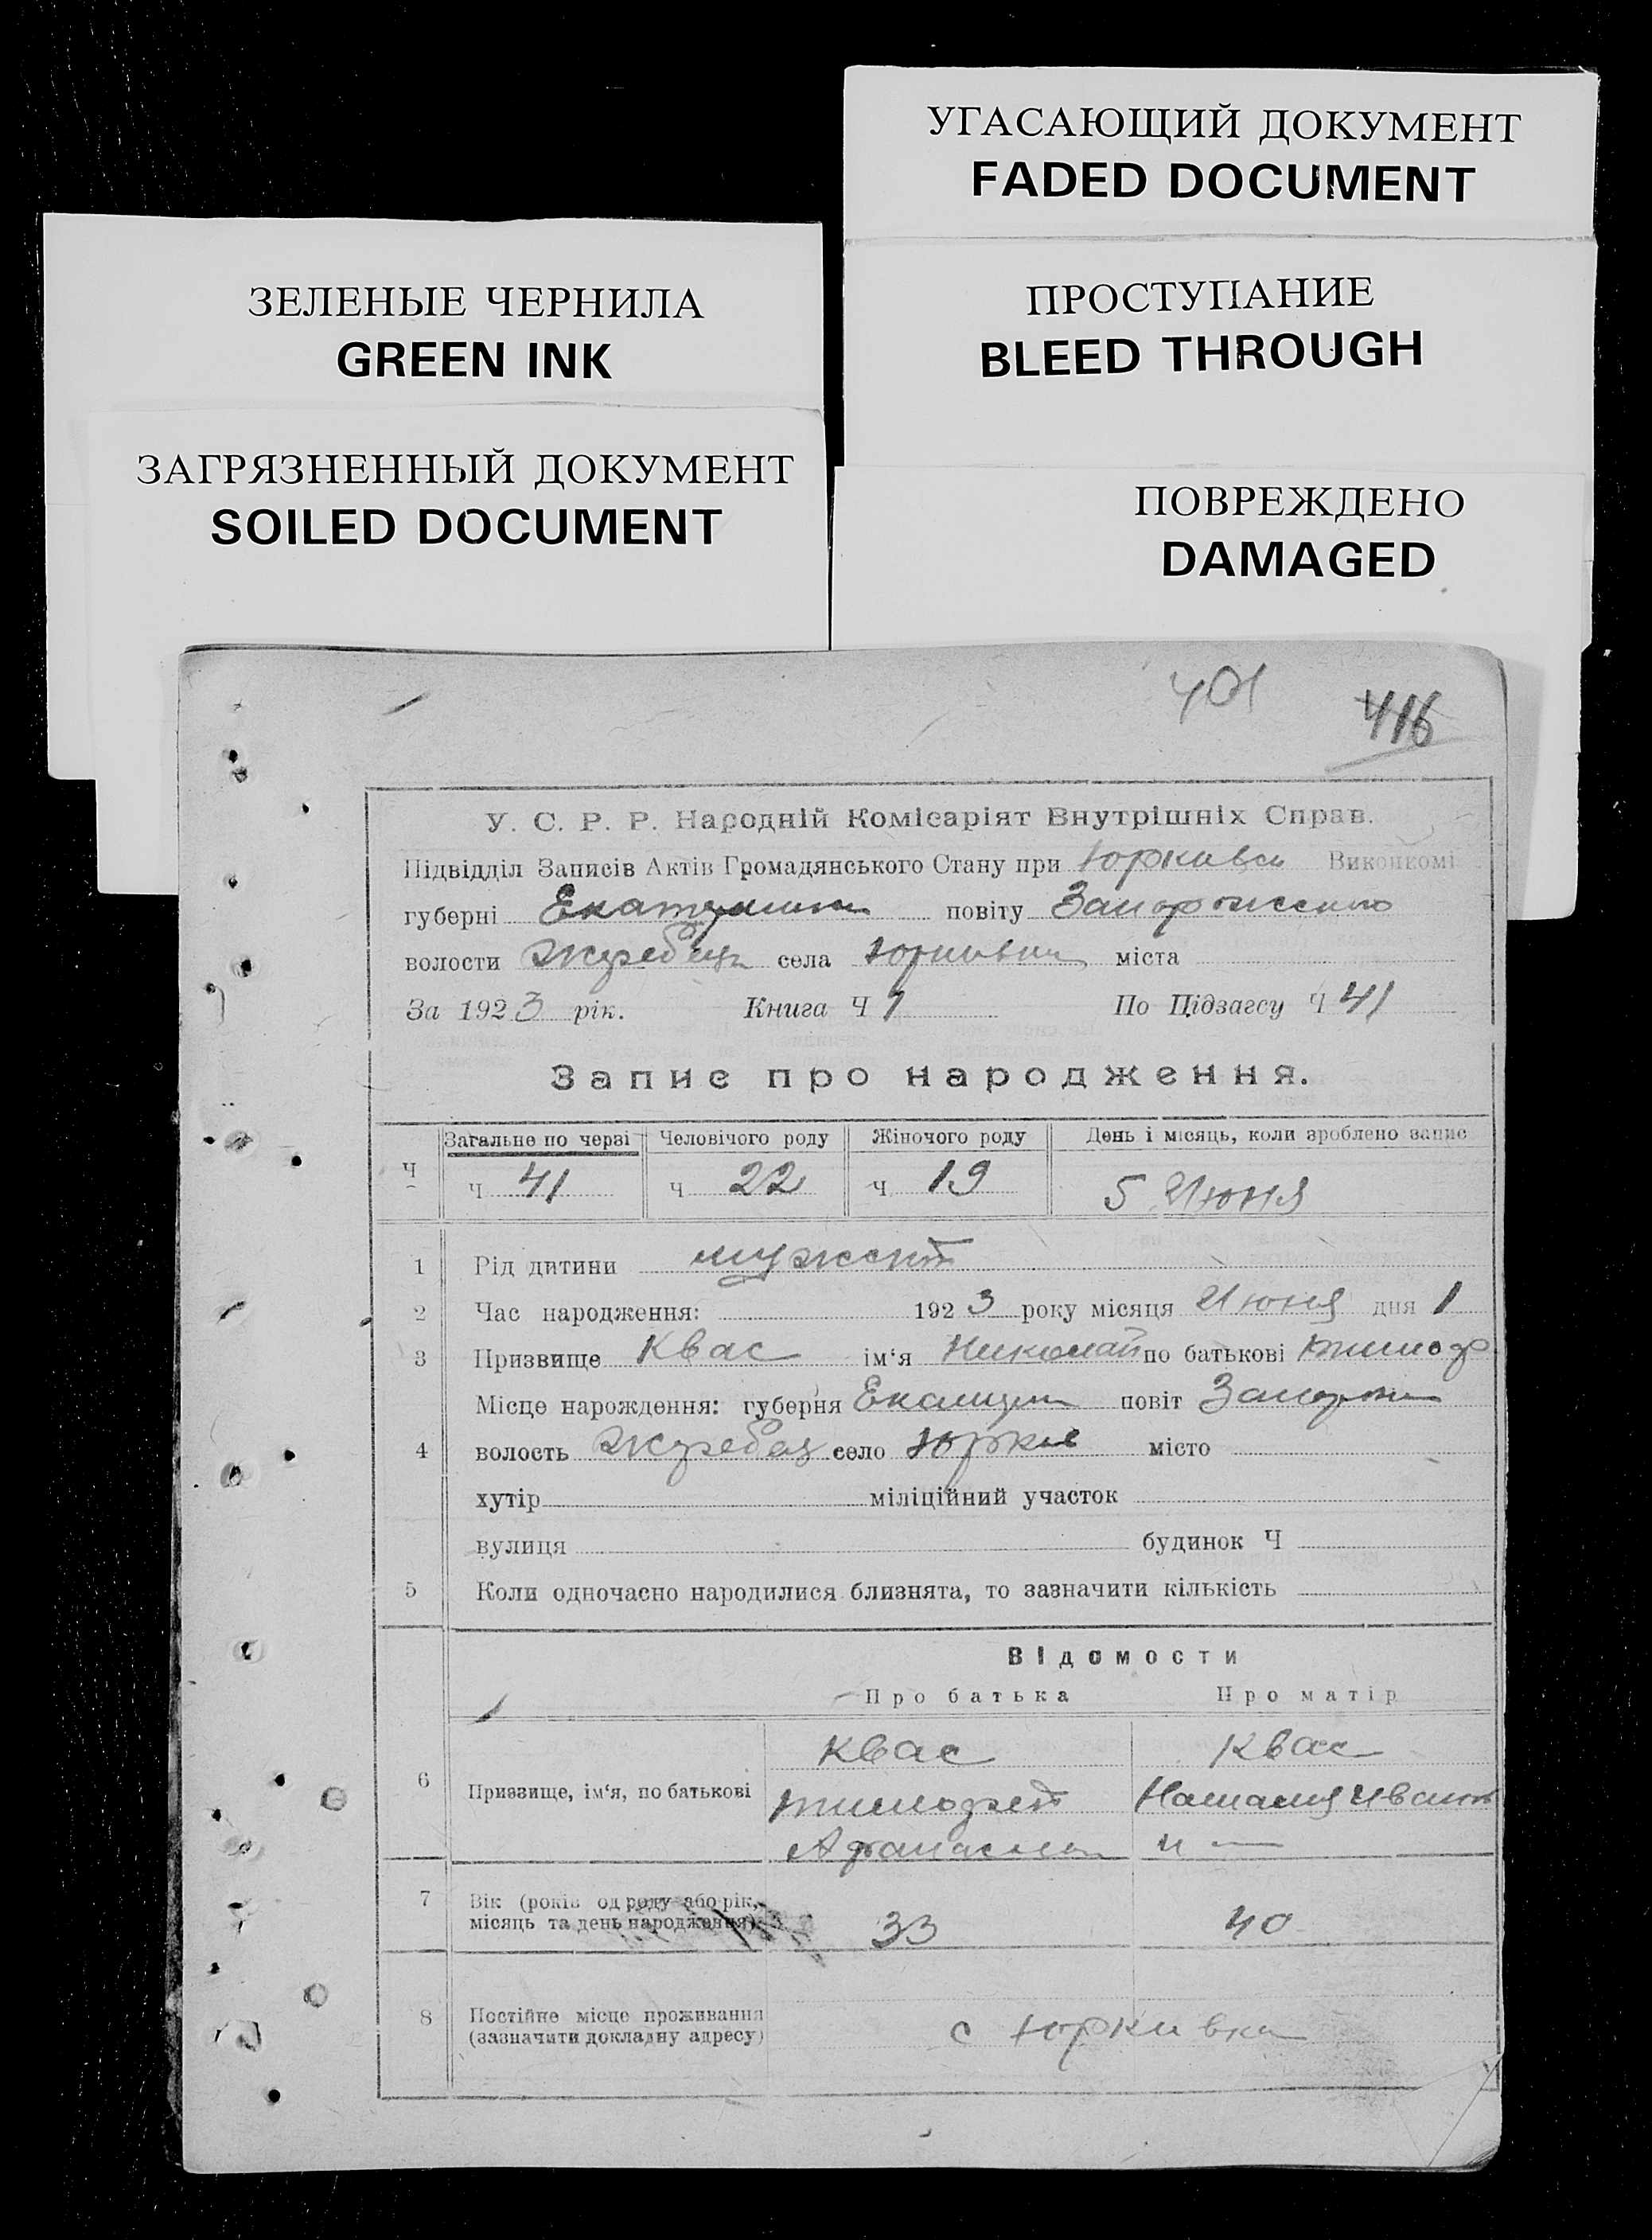 УГАСАЮЩИЙ ДОКУМЕНТ
FADED DOCUMENT
ЗЕЛЕНЫЕ ЧЕРНИЛА
GREEN INK
ПРОСТУПАНИЕ
BLEED THROUGH
ЗАГРЯЗНЕННЫЙ ДОКУМЕНТ
SOILED DOCUMENT
ПОВРЕЖДЕНО
DAMAGED
401
416
У. С. Р. Р. Народній Комісаріят Внутрішніх Справ.
Підвідділ Записів Актів Громадянського Стану при Виконкомі
губерні повіту
волости Жеребец села міста
За 1923 рік. Книга Ч 1 По Підзагсу Ч 41
Запис про народження.
Загальне по черзі Человічого роду Жіночого роду День і місяць, коли зроблено запис
Ч Ч 41 Ч 22 Ч 19 5 Июня
1 Рід дитини мужск
2 Час народження: 1923 року місяця Июня дня 1
3 Призвище Квас ім‘я Николай по батькові Тимоф
Місце нарождення: губерня повіт
4 волость Жеребец село Юрков місто
хутір міліційний участок
вулиця будинок Ч
5 Коли одночасно народилися близнята, то зазначити кількість
Відомости
Про батька Про матір
Квас Квас
6 Призвище, ім‘я, по батькові Тимофей Наталия Иванов
7 Вік (років од роду або рік,
місяць та день народження) 33 40
8 Постійне місце проживання
(зазначити докладну адресу) с Юркивка